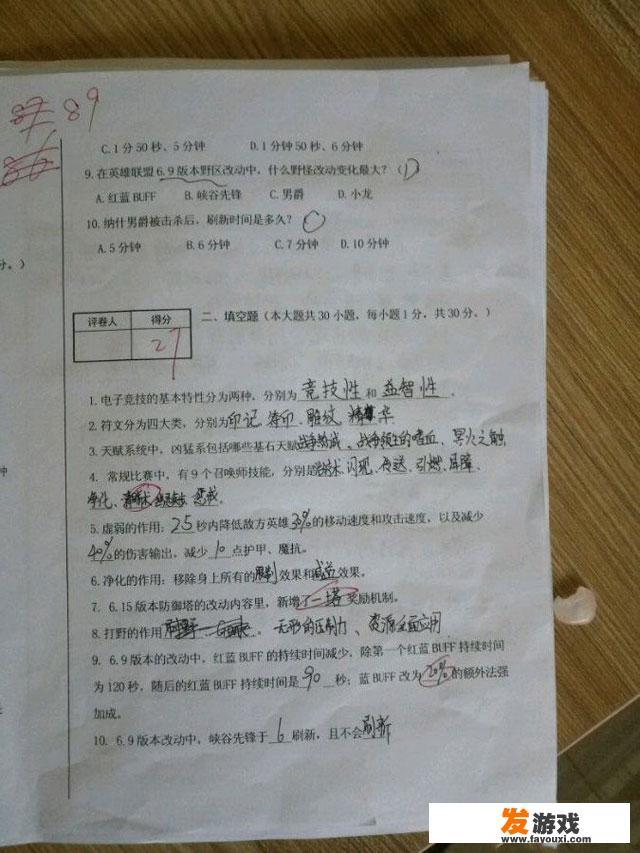 89
C.1分50秒、5分钟 D.1分钟50秒、6分钟
9.在英雄联盟6.9版本野区改动中，什么野怪改动变化最大？（D）
A.红蓝BUFF B.峡谷先锋 C.男爵 D.小龙
10.纳什男爵被击杀后，刷新时间是多久？（C）
A.5分钟 B.6分钟 C.7分钟 D.10分钟
分。）
评卷人 得分
27
二、填空题（本大题共30小题，每小题1分，共30分。）
1.电子竞技的基本特性分为两种，分别为竞技性和益智性。
2.符文分为四大类，分别为印记、符印、雕纹、精华
3.天赋系统中，凶猛系包括哪些基石天赋战争热诚、战争领主的嗜血、冥火之触
4. 常规比赛中，有9个召唤师技能，分别是治疗术、闪现、传送、引燃、屏障、
净化、惩戒
5.虚弱的作用：2.5秒内降低敌方英雄30%的移动速度和攻击速度，以及减少
40%的伤害输出，减少10点护甲、魔抗。
6.净化的作用：移除身上所有的限制效果和减益效果。
7. 6.15版本防御塔的改动内容里，新增了一塔奖励机制。
8.打野的作用 无形的压制力、资源全面应用
9. 6.9版本的改动中，红蓝BUFF的持续时间减少，除第一个红蓝BUFF持续时间
为120秒，随后的红蓝BUFF持续时间是90秒；蓝BUFF改为20%的额外法强
加成。
10. 6.9版本改动中，峡谷先锋于6刷新，且不会刷新
钟
发游戏
www.fayouxi.com